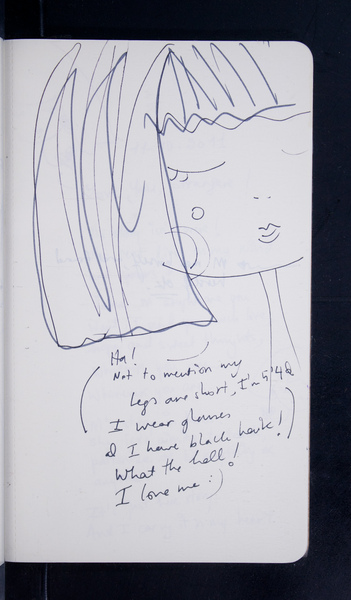 Ha!
(Not to mention my
legs are short, I'm 5'4 &
I wear glasses
& I have black hair!)
What the hell!
I love me :)